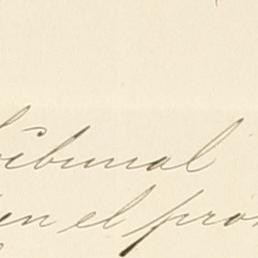 Tribunal
en el pro